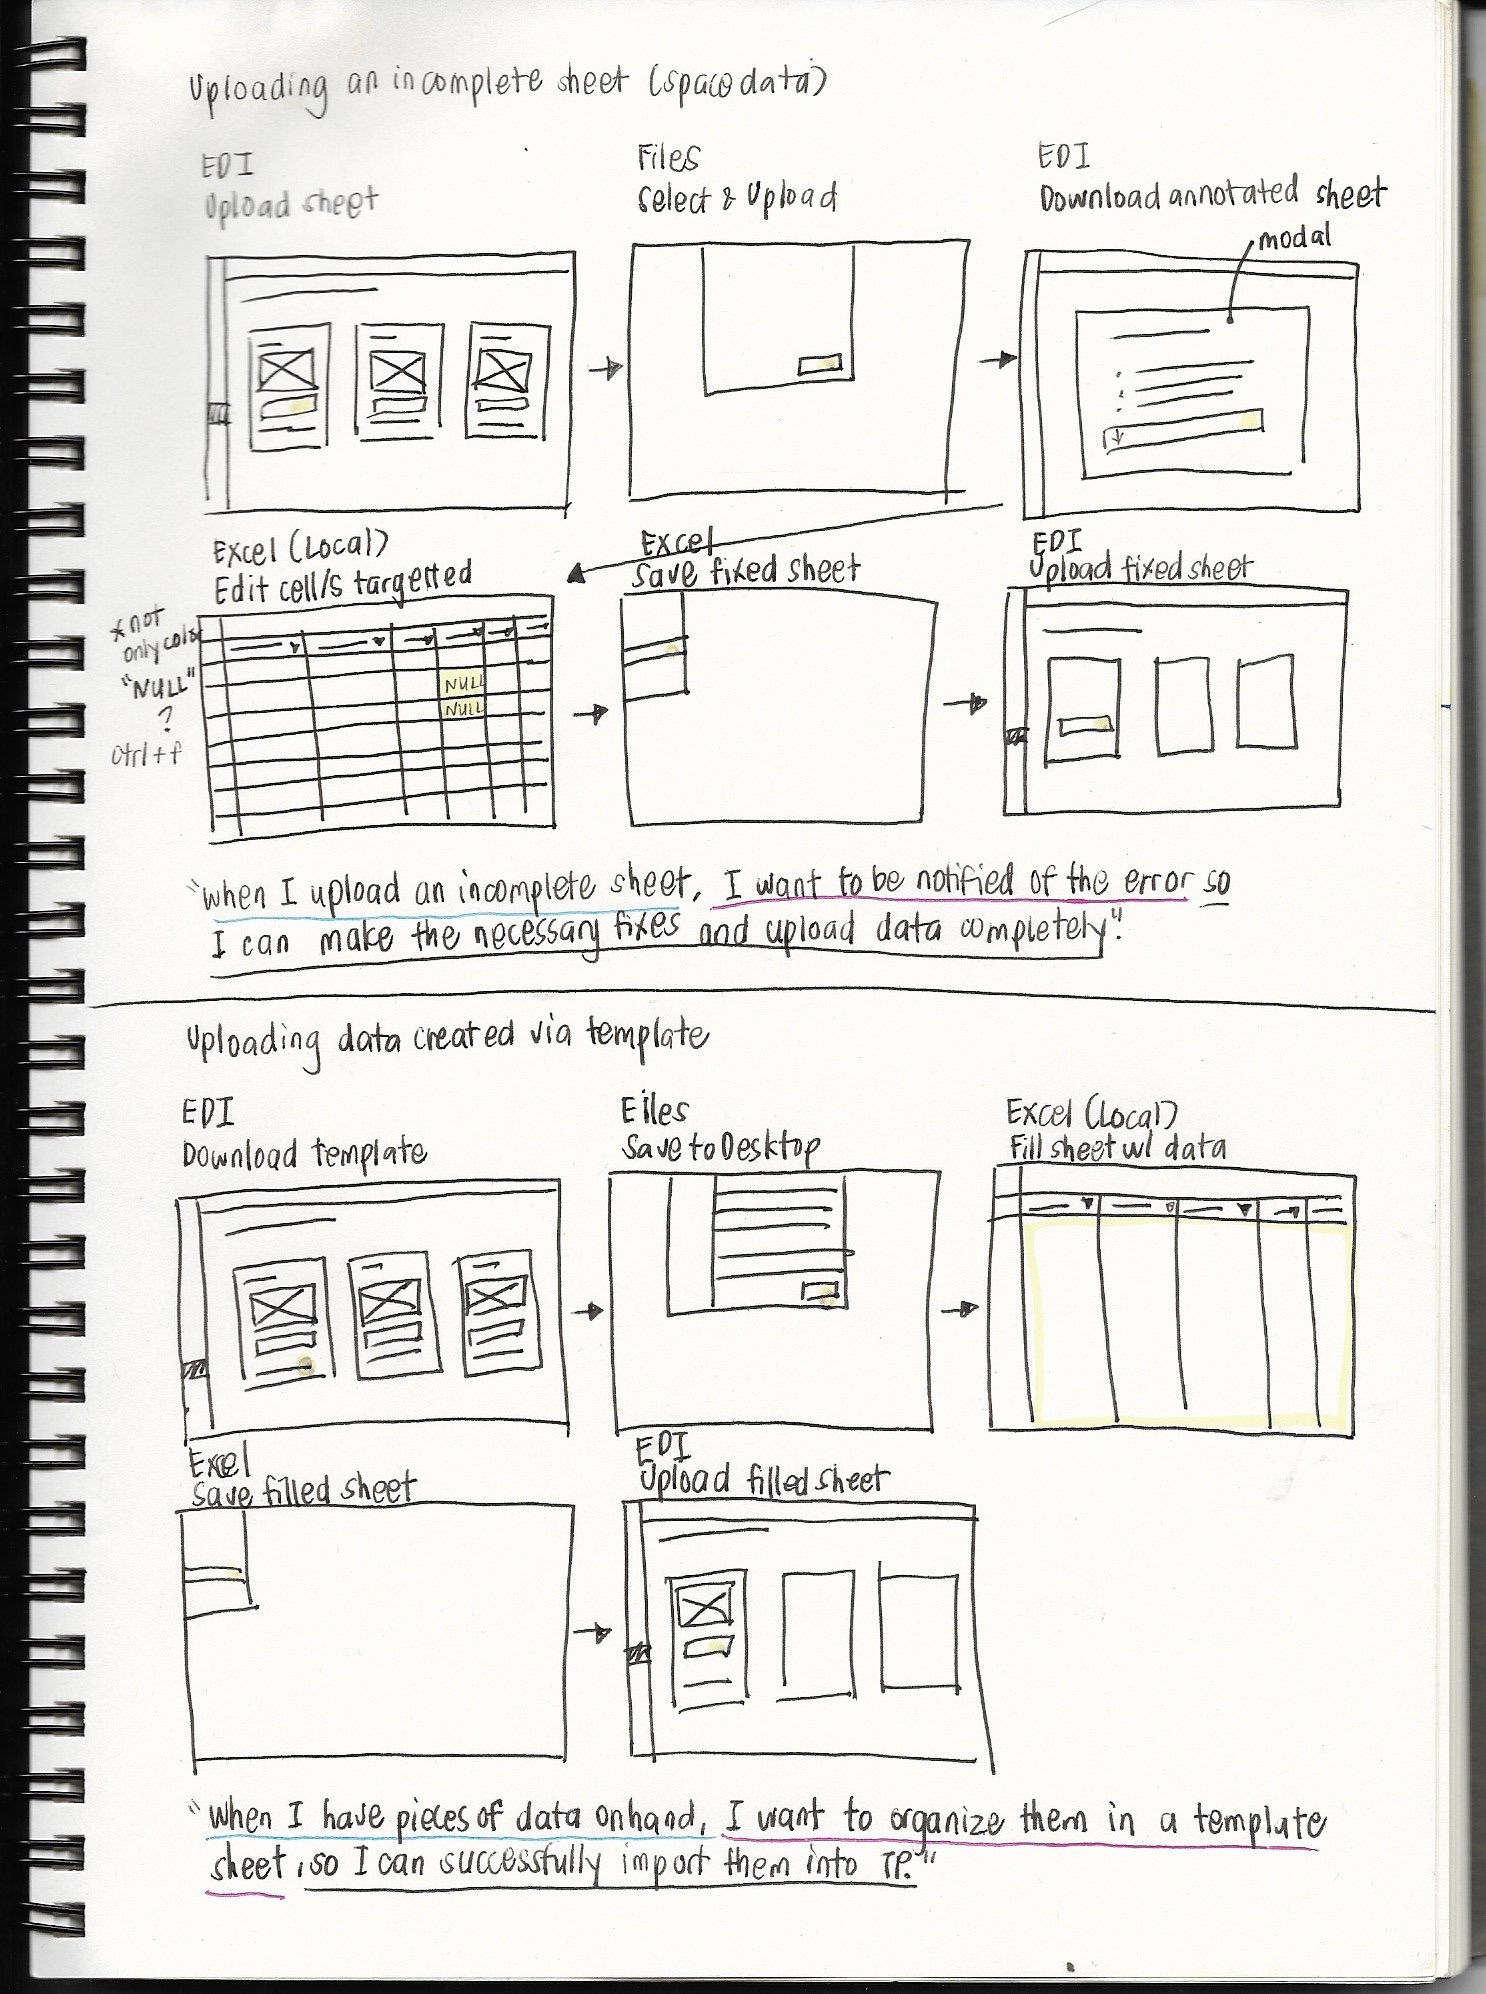 Uploading an incomplete sheet (space data)
EDI
Upload sheet
Files
Select & Upload
EDI
Download annotated sheet
modal
Excel (Local)
Edit cell/s targetted
Excel
Save fixed sheet
EDI
Upload fixed sheet
*not
only color
"NULL"
?
ctrl+f
NULL
NULL
"When I upload an incomplete sheet, I want to be notified of the error so
I can make the necessary fixes and upload data completely."
Uploading data created via template
EDI
Download template
Files
Save to Desktop
Excel (Local)
Fill sheet w/ data
Excel
Save filled sheet
EDI
Upload filled sheet
"When I have pieces of data onhand, I want to organize them in a template
sheet, so I can successfully import them into TP."